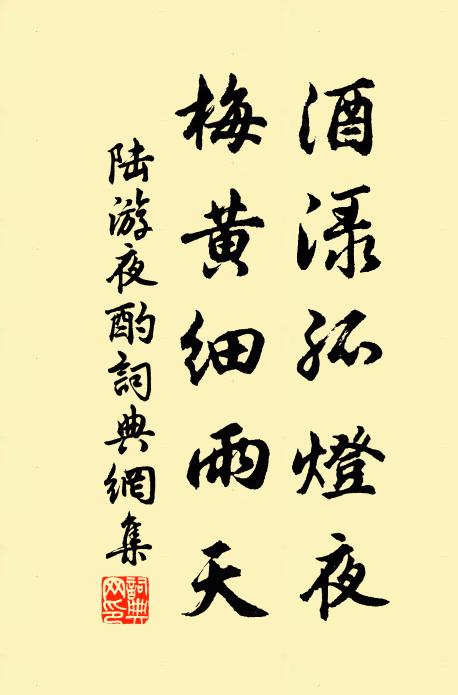 酒渌孤燈夜
梅黄細雨天
陆游夜酌詞典網集
詞典网印